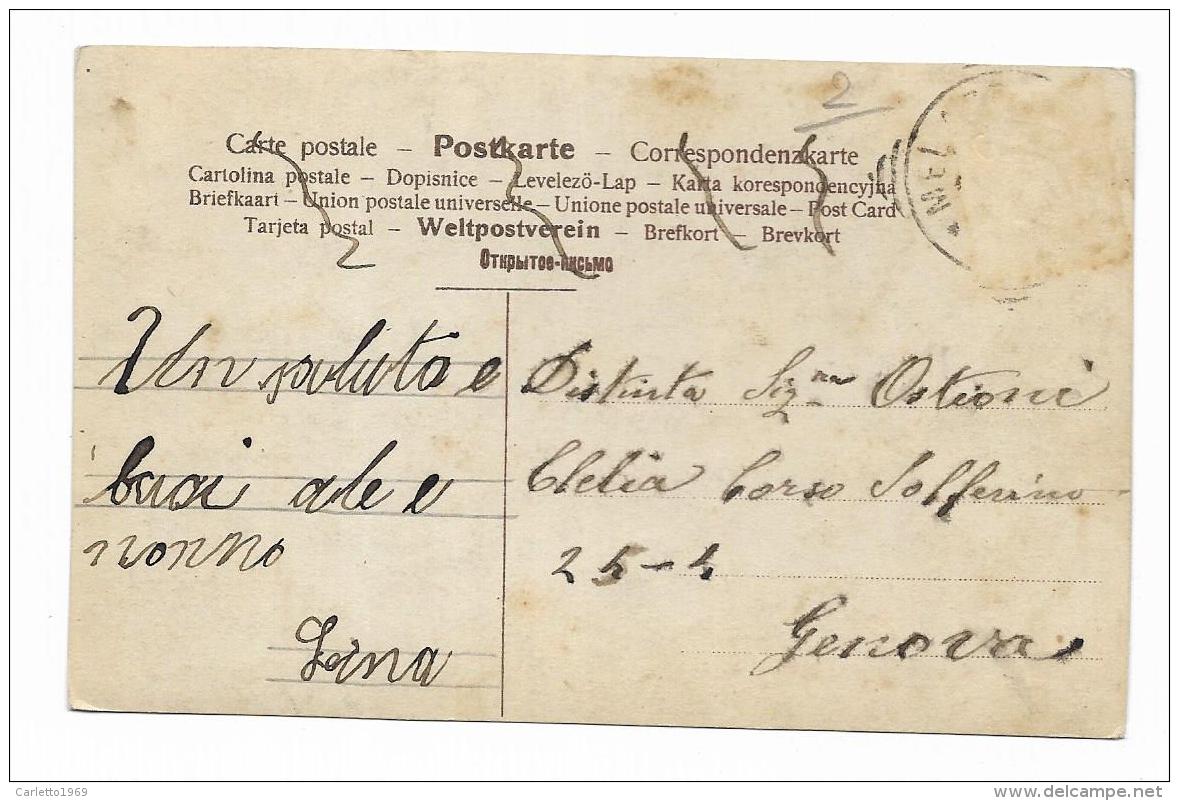 2
Carte postale – Postkarte – Correspondenzkarte
Cartolina postale – Dopisnice – Levelező-Lap – Karta korespondencyjna
Briefkaart – Union postale universelle – Unione postale universale – Post Card
Tarjeta postal – Weltpostverein – Brefkort – Brevkort
Открытое-письмо
Un saluto e
baci ale e
nonno
Lina
Distinta Signa Ostioni
Clelia Corso Solferino
25-4
Genova
Carletto1969
delcampe.net